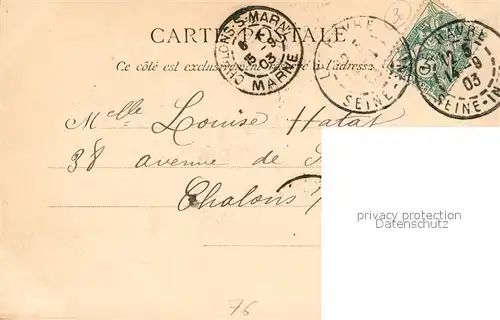 CARTE POSTALE
Ce côté est exclusivement réservé à l'adresse
CHALONS-S-MARNE
15 -9 03
MARNE
LE HAVRE
SEINE-IN
LE HAVRE
14 -9 03
SEINE-IN
Melle Louise Hatat
38 avenue de
Chalons
privacy protection
www.delcampe.net
76